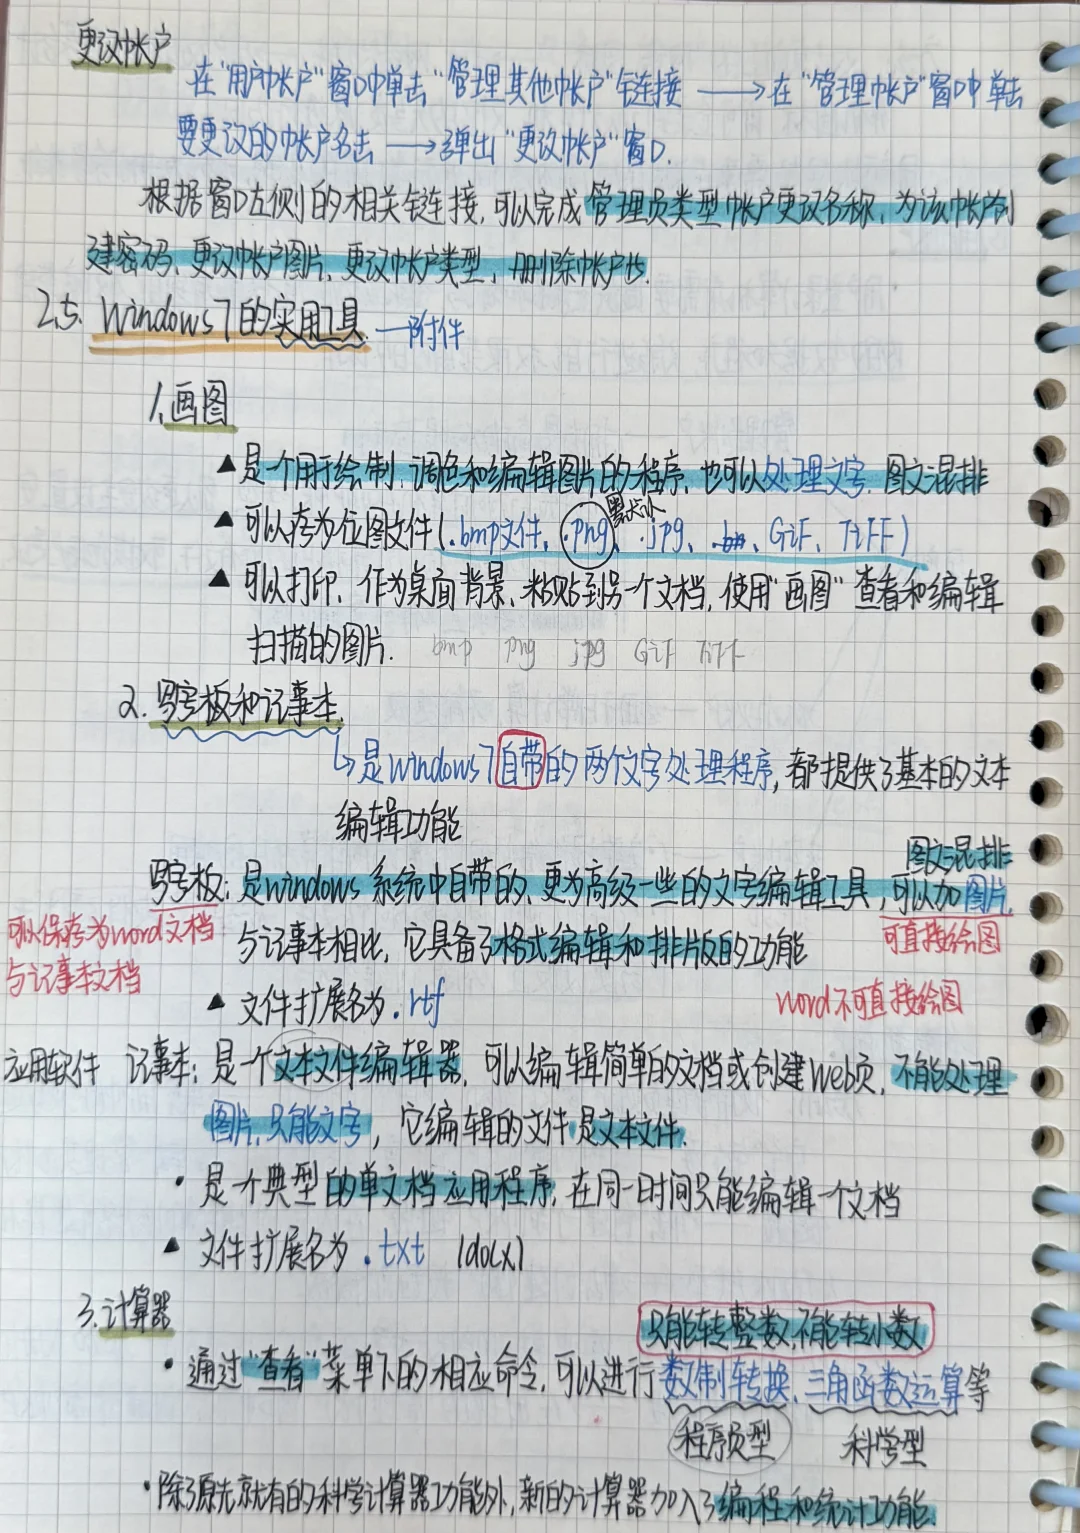 更改帐户
在"用户帐户"窗口中单击"管理其他帐户"链接 → 在"管理帐户"窗口中单击
要更改的帐户名击 → 弹出"更改帐户"窗口.
根据窗口左侧的相关链接,可以完成管理员类型帐户更改名称、为该帐户创
建密码、更改帐户图片、更改帐户类型、删除帐户等.
2.5. Windows 7的实用工具 —附件
1.画图
▲是一个用于绘制、调色和编辑图片的程序,也可以处理文字、图文混排
默认
▲可以存为位图文件(.bmp文件、.png、.jpg、、GiF、TiFF)
▲可以打印、作为桌面背景、粘贴到另一个文档,使用"画图"查看和编辑
扫描的图片.
bmp png jpg GiF TiFF
2.写字板和记事本.
↳是windows7自带的两个文字处理程序,都提供了基本的文本
编辑功能
图文混排
写字板:是windows系统中自带的、更为高级一些的文字编辑工具,可以加图片,
可以保存为word文档
与记事本相比,它具备了格式编辑和排版的功能
可直接绘图
与记事本文档
▲文件扩展名为.rtf
word不可直接绘图
应用软件 记事本:是一个文本文件编辑器,可以编辑简单的文档或创建Web页,不能处理
图片,只能文字,它编辑的文件是文本文件.
·是一个典型的单文档应用程序,在同一时间只能编辑一个文档
▲文件扩展名为.txt (docx)
3.计算器
只能转整数,不能转小数
·通过"查看"菜单下的相应命令,可以进行数制转换、三角函数运算等
程序员型 科学型
·除了原先就有的科学计算器功能外,新的计算器加入了编程和统计功能.